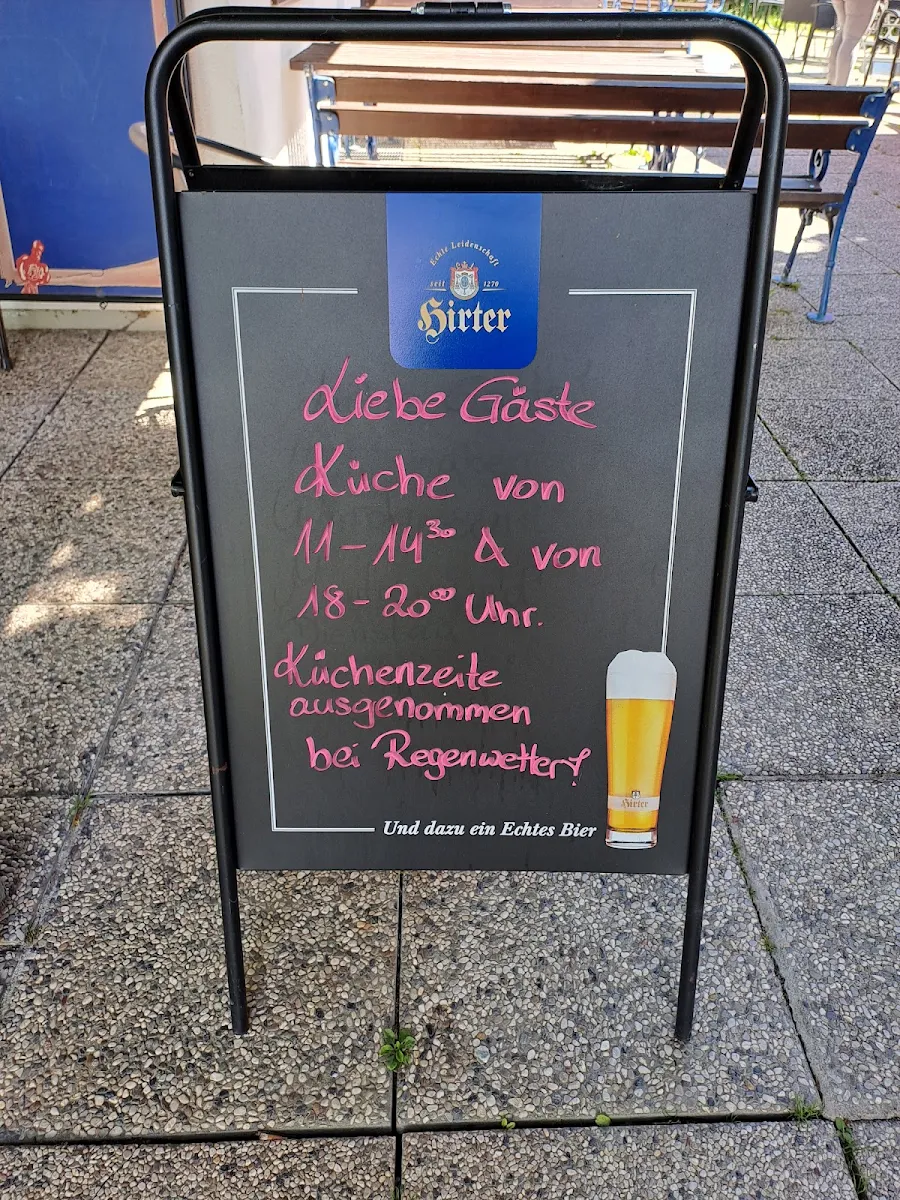 Echte Leidenschaft
seit 1270
Hirter
Liebe Gäste
Küche von
11-14³⁰ & von
18-20⁰⁰ Uhr.
Küchenzeite
ausgenommen
bei Regenwetter!
Hirter
Und dazu ein Echtes Bier